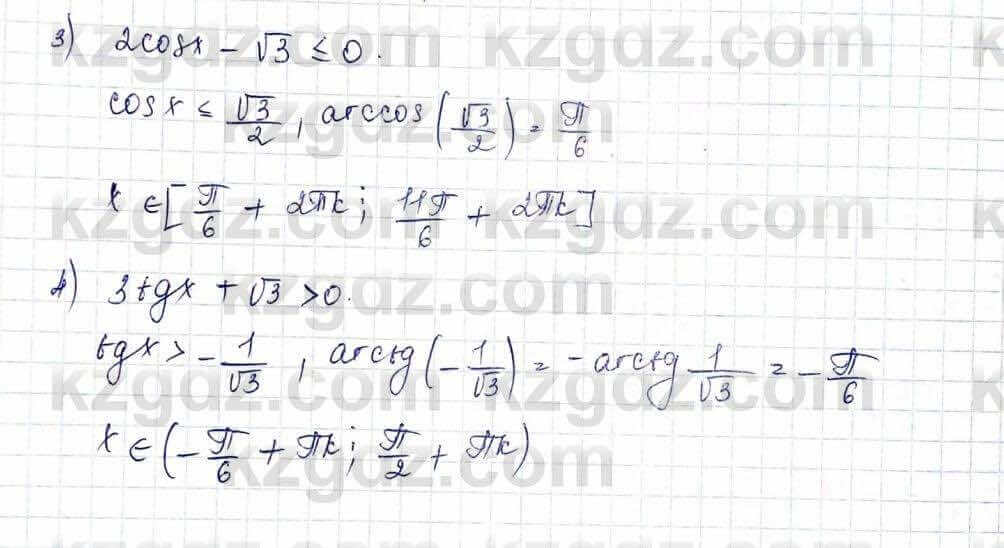 3) 2cosx - √3 ≤ 0.
cosx ≤ √3/2, arccos(√3/2) = π/6
x ∈ [π/6 + 2πk; 11π/6 + 2πk]
4) 3tgx + √3 > 0.
tgx > -1/√3, arctg(-1/√3) = -arctg 1/√3 = -π/6
x ∈ (-π/6 + πk; π/2 + πk)
kzgdz.com